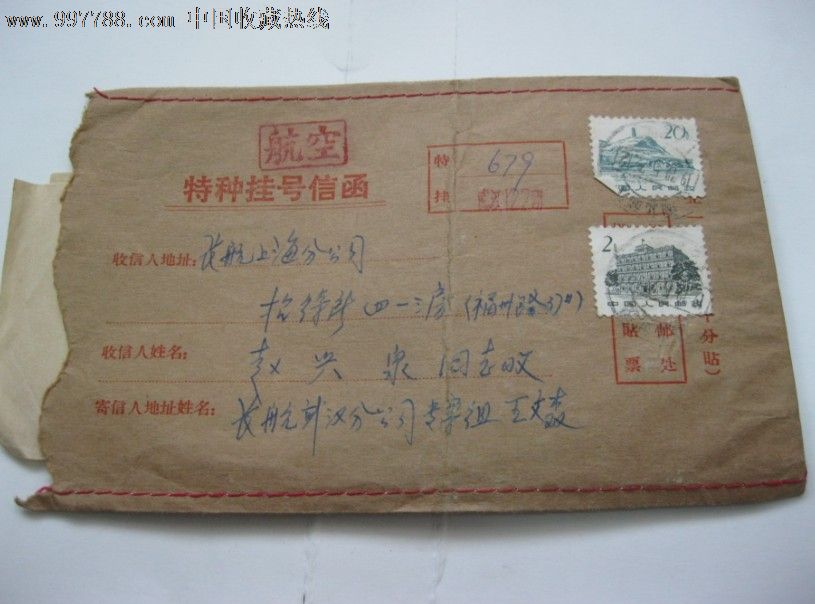 www.997788.com 中国收藏热线
航空
特种挂号信函
特 679
挂
20
中国人民邮政
2
中国人民邮政
收信人地址: 长航上海分公司
招待所 四一三房 (福州路37#)
收信人姓名: 赵兴泉 同志收
寄信人地址姓名: 长航武汉分公司专案组 王文森
贴邮
票处
分貼)